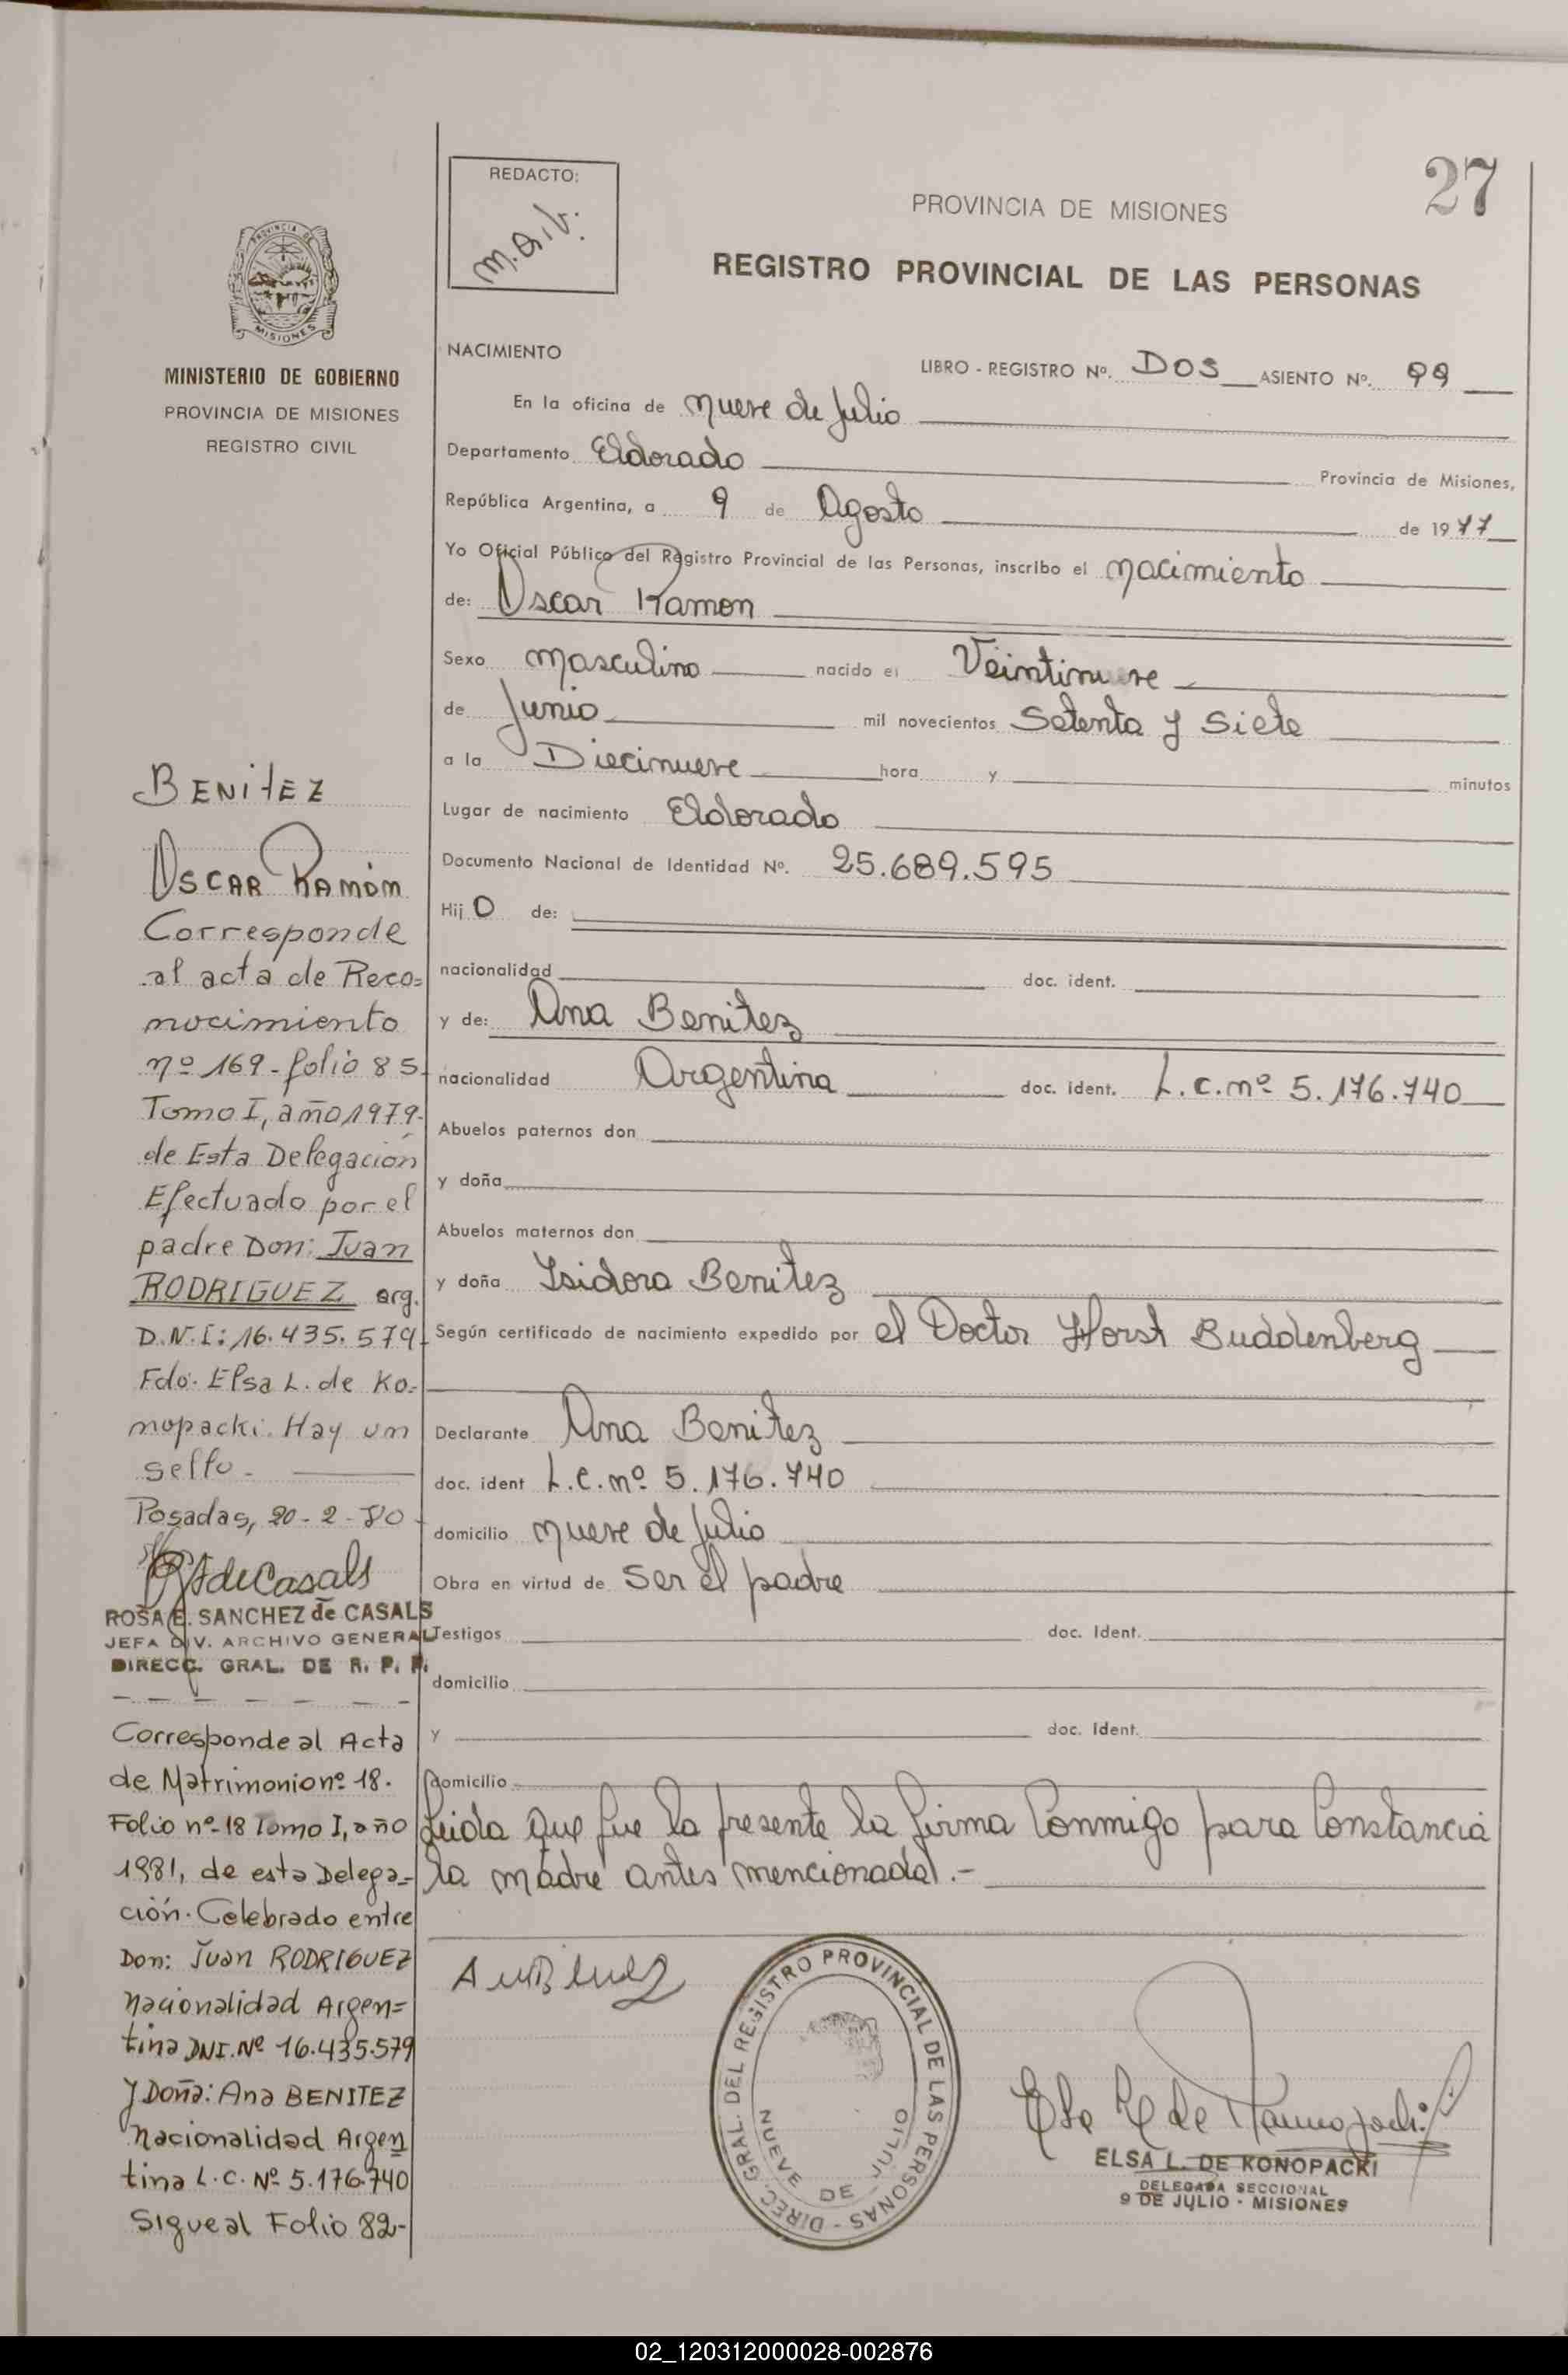 27
REDACTO:
M.A.V.
PROVINCIA DE MISIONES
REGISTRO PROVINCIAL DE LAS PERSONAS
PROVINCIA DE
MISIONES
MINISTERIO DE GOBIERNO
PROVINCIA DE MISIONES
REGISTRO CIVIL
NACIMIENTO
LIBRO - REGISTRO Nº. DOS ASIENTO Nº. 99
En la oficina de Nueve de Julio
Departamento Eldorado Provincia de Misiones,
República Argentina, a 9 de Agosto de 1977
Yo Oficial Público del Registro Provincial de las Personas, inscribo el nacimiento
de: Oscar Ramon
Sexo masculino nacido el Veintinueve
de Junio mil novecientos Setenta y Siete
a la Diecinueve hora y minutos
Lugar de nacimiento Eldorado
Documento Nacional de Identidad Nº. 25.689.595
Hij O de:
nacionalidad doc. ident.
y de: Ana Benitez
nacionalidad Argentina doc. ident. L.C.nº 5.176.740
Abuelos paternos don
y doña
Abuelos maternos don
y doña Isidora Benitez
Según certificado de nacimiento expedido por el Doctor Horst Buddenberg
Declarante Ana Benitez
doc. ident L.C.nº 5.176.740
domicilio nueve de Julio
Obra en virtud de ser el padre
Testigos doc. Ident.
domicilio
y doc. Ident.
domicilio
Leida que fue la presente la firma Conmigo para Constancia
la madre antes mencionada.-
BENITEZ
OSCAR RAMÓN
Corresponde
al acta de Reco=
nocimiento
nº 169-folio 85
Tomo I, año 1979-
de Esta Delegación
Efectuado por el
padre Don: Juan
RODRIGUEZ arg.
D.N.I: 16.435.579
Fdo. Elsa L. de Ko=
nopacki. Hay un
sello.
Posadas, 20-2-80
ROSA E. SANCHEZ de CASALS
JEFA DIV. ARCHIVO GENERAL
DIRECC. GRAL. DE R. P. P.
Corresponde al Acta
de Matrimonio nº 18.
Folio nº 18 Tomo I, año
1981, de esta Delega=
ción. Celebrado entre
Don: Juan RODRIGUEZ
Nacionalidad Argen=
tina DNI. Nº 16.435.579
y Doña: Ana BENITEZ
Nacionalidad Argen
tina L.C. Nº 5.176.740
Sigue al Folio 82-
DIREC. GRAL. DEL REGISTRO PROVINCIAL DE LAS PERSONAS -
NUEVE DE JULIO
ELSA L. DE KONOPACKI
DELEGADA SECCIONAL
9 DE JULIO - MISIONES
02_120312000028-002876